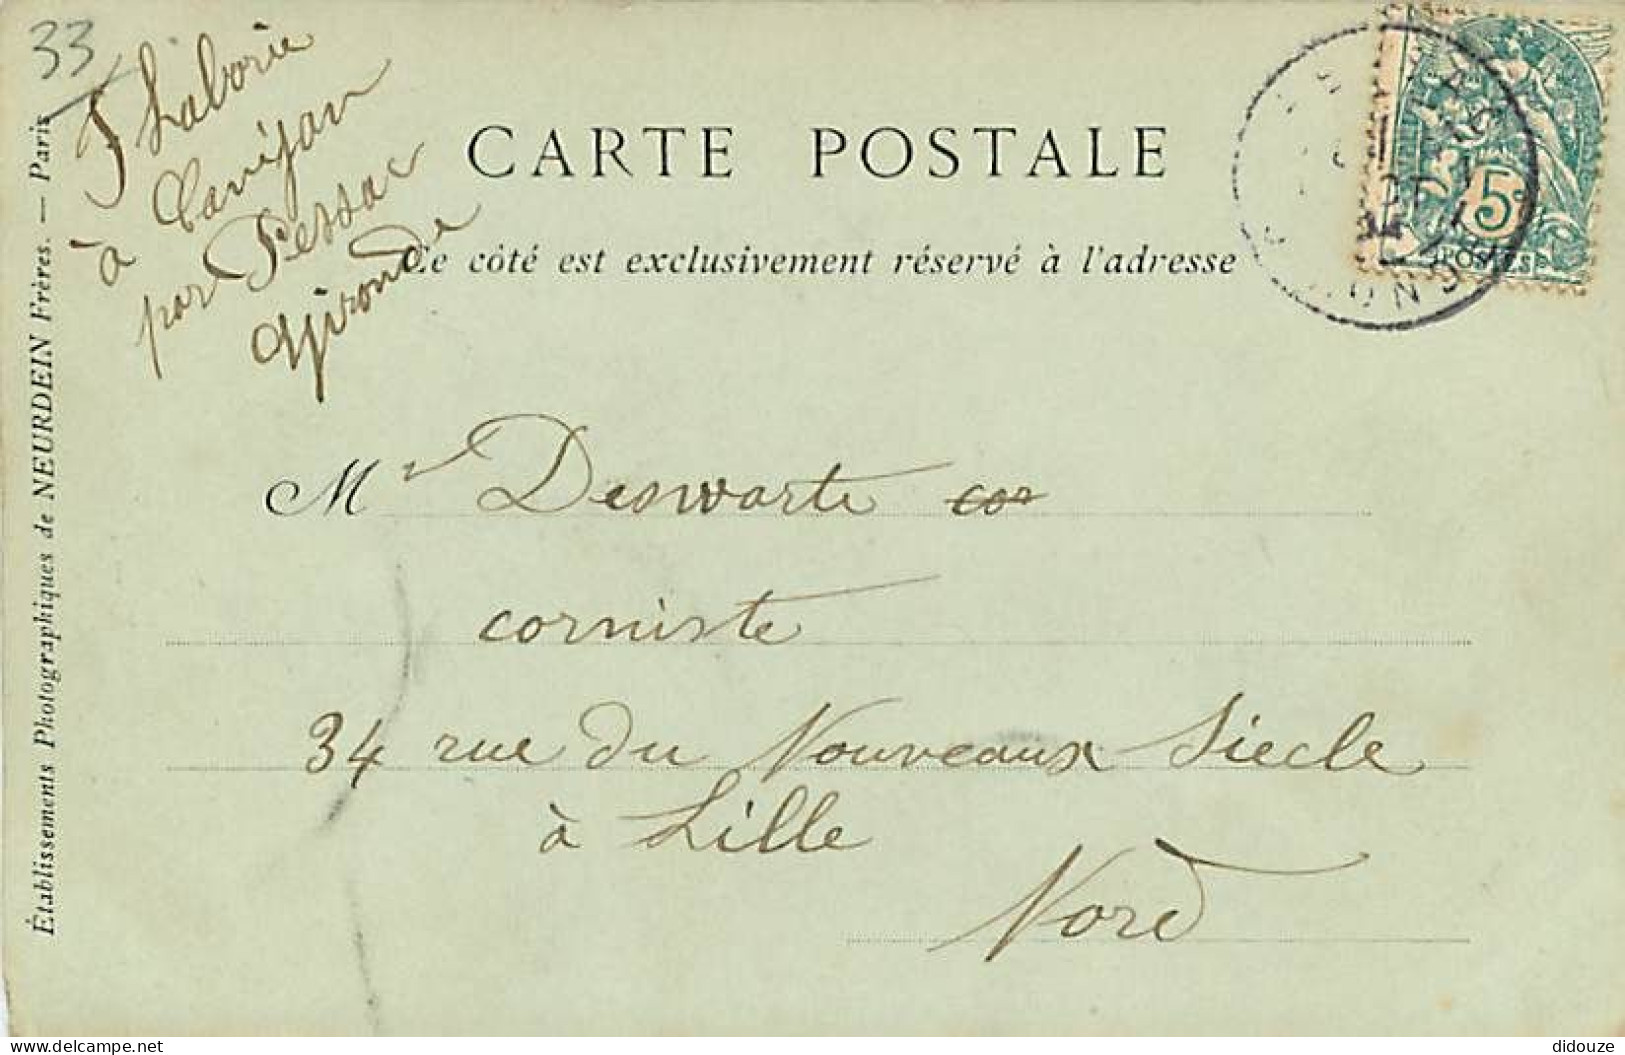 33
F Laborie
à Canéjan
par Pessac
Gironde
CARTE POSTALE
Ce côté est exclusivement réservé à l'adresse
5c
POSTES
GIRONDE
Mr Deswarte
corniste
34 rue du Nouveaux Siecle
à Lille
Nord
Établissements Photographiques de NEURDEIN Frères. — Paris
www.delcampe.net
didouze